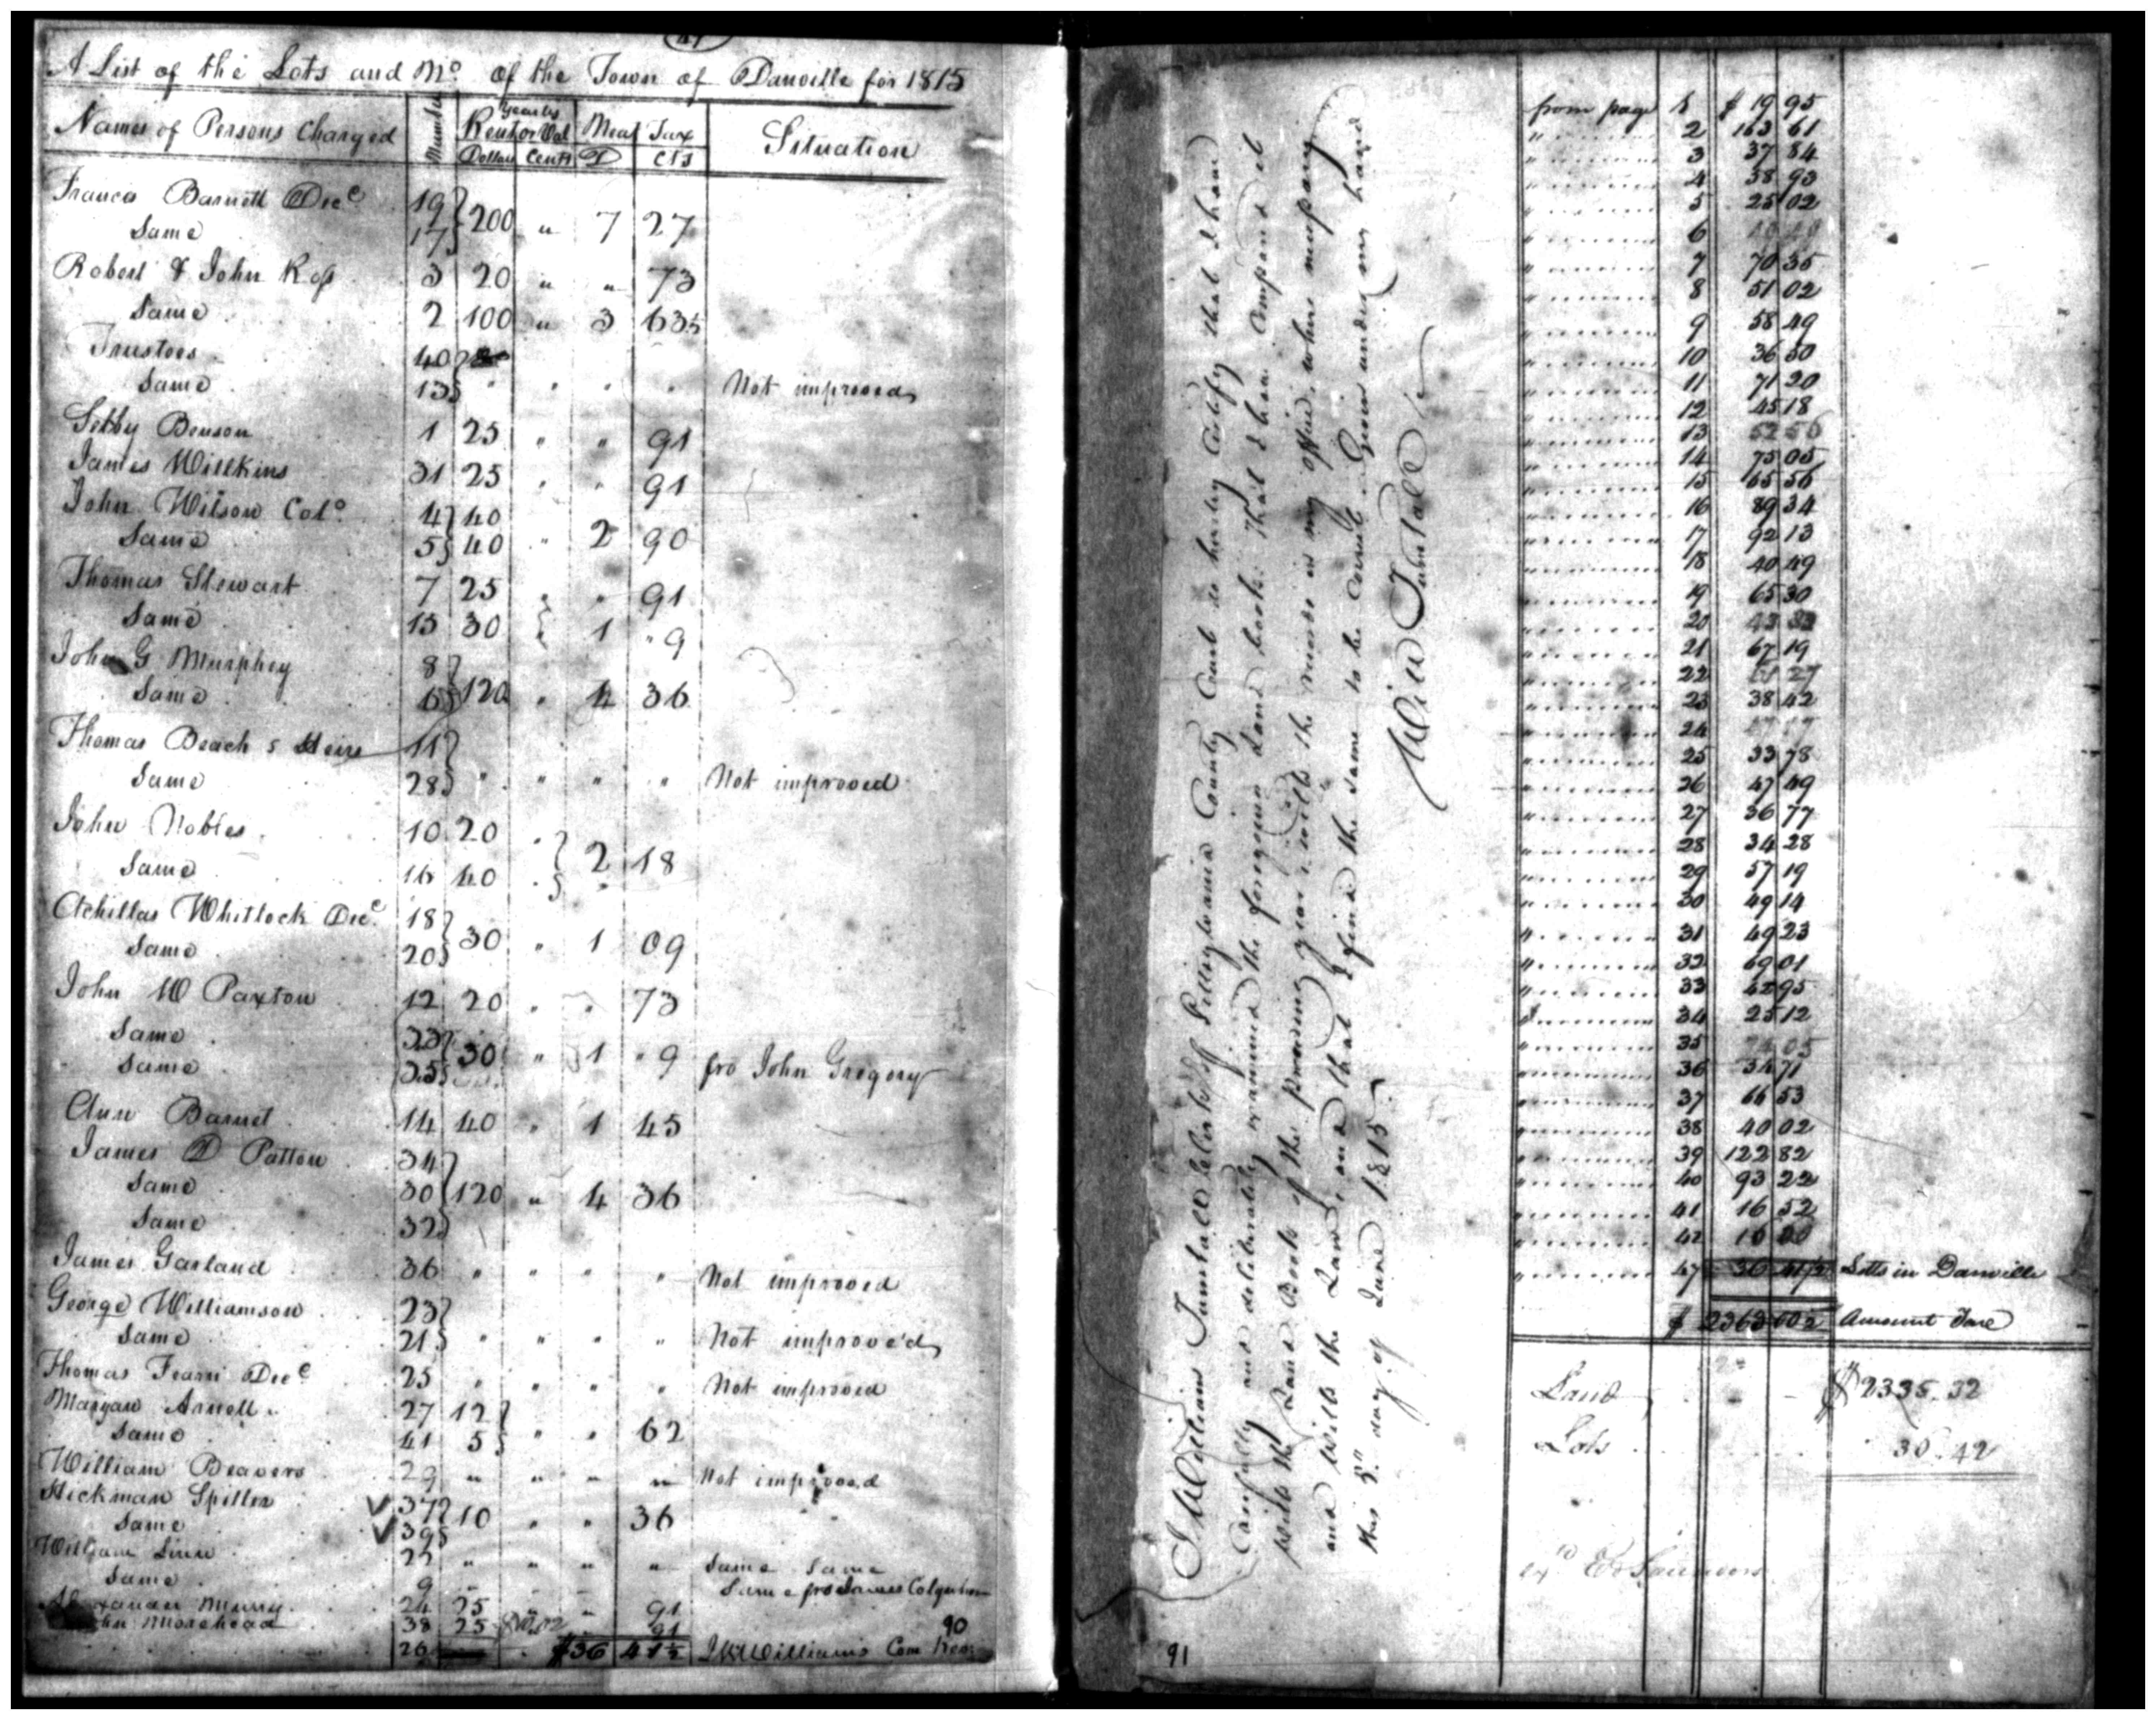 47
A List of the Lots and Mo of the Town of Danville for 1815
Names of Persons Charged Number Yearly Rent or Val Meat Tax Situation
Dollars Cents D Cts
Francis Barnett Dece 19 } 200 " 7 27
Same 17 }
Robert & John Ross 3 20 " " 73
Same 2 100 " 3 635
Trustees 40 }
Same 13 } " " " " Not improved
Setby Benson 1 25 " " 91
James Willkins 31 25 " " 91
John Wilson Colo 4 } 40
Same 5 } 40 " 2 90
Thomas Stewart 7 25 " " 91
Same 15 30 " 1 "9
John G Murphey 8 }
Same 6 } 120 " 4 36
Thomas Beach s Heirs 11 }
Same 28 } " " " " Not improved
John Nobles 10 20 " }
Same 16 40 " } 2 18
Achillas Whitlock Dece 18 } 30 " 1 09
Same 20 }
John W Paxton 12 20 " " 73
Same 33 }
Same 35 } 30 " 1 "9 fro John Gregory
Ann Barnet 14 40 " 1 45
James D Patton 34 }
Same 30 } 120 " 4 36
Same 32 }
James Garland 36 " " " " Not improved
George Williamson 23 }
Same 21 } " " " " Not improved
Thomas Fearn Dece 25 " " " " Not improved
Maryan Arnett 27 12 }
Same 41 5 } " " 62
William Beavers 29 " " " " Not improved
Hickman Spiller 37 } 10 " " 36
Same 39 }
William Linn 22 " " " " Same Same
Same 9 " " " Same fro James Colquhoun
Murry 24 25 " " 91
Morehead 38 25 91
26 $36 41½ Williams Com Rev
90
I William Tunstall Clerk of Pittsylvania County Court do hereby Certify that I have
Carefully and deliberately examined the foregoing Land book. that I have Compared it
with the Land Book of the preceding year; with the records in my office, where necessary
and with the Land and that I find the same to be Correct. Given under my hand
this 5" day of June 1815.
Will Tunstall
from page 1 $ 19 95
" 2 163 61
" 3 37 84
" 4 58 93
" 5 25 02
" 6
" 7 70 35
" 8 51 02
" 9 58 49
" 10 36 50
" 11 71 20
" 12 45 18
" 13 52 56
" 14 75 05
" 15 65 56
" 16 89 34
" 17 92 13
" 18 40 49
" 19 65 30
" 20
" 21 67 19
" 22 27
" 23 38 42
" 24
" 25 33 78
" 26 47 49
" 27 36 77
" 28 34 28
" 29 57 19
" 30 49 14
" 31 49 23
" 32 69 01
" 33 42 95
" 34 25 12
" 35 05
" 36 34 71
" 37 66 53
" 38 40 02
" 39 122 82
" 40 93 22
" 41 16 52
" 42 10
" 47 36 41½ Lotts in Danville
$ 2363 60½ Amount Taxe
Land $2335.32
Lots 36.42
exd
91